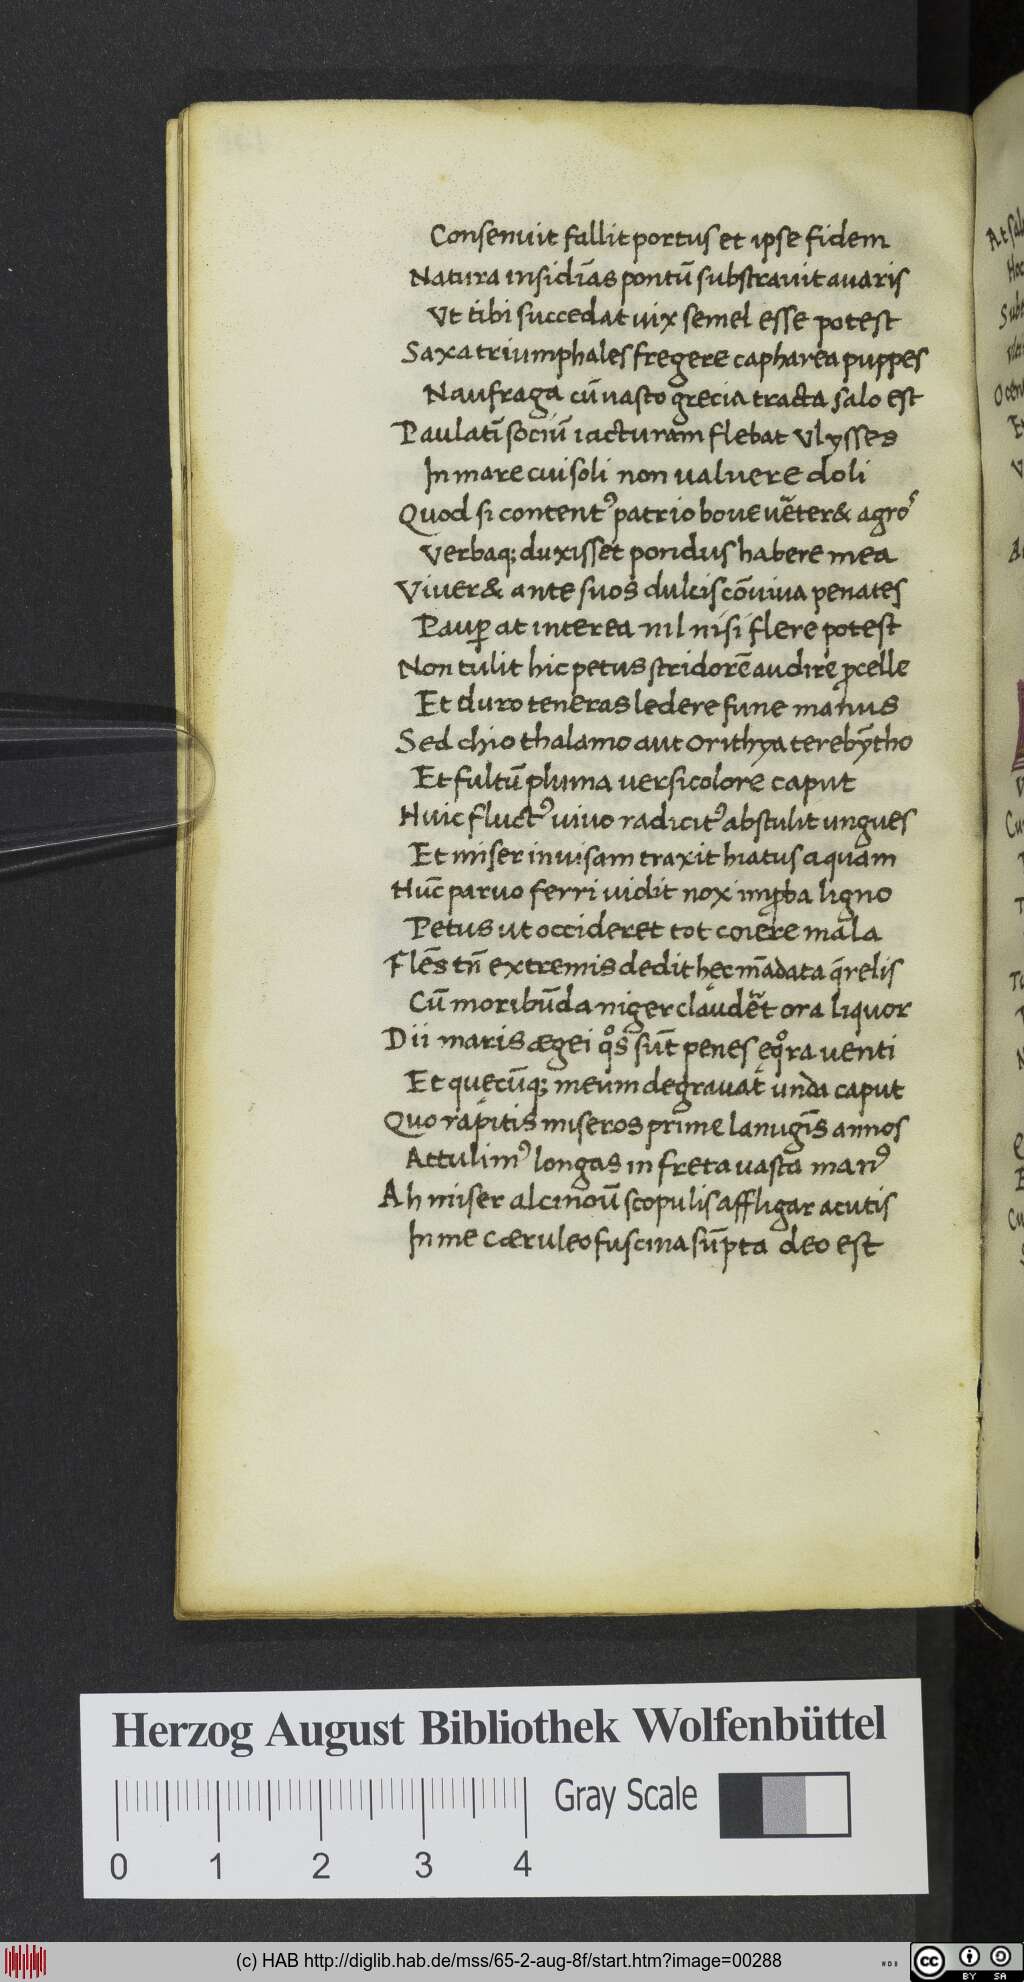 Consenuit fallit portus et ipse fidem
Natura insidiãs pontũ substravit avaris
Vt tibi succedat uix semel esse potest
Saxa triumphales fregere capharea puppes
Naufraga cũ uasto grecia tracta salo est
Paulatĩ sociũ iacturam flebat Vlysses
In mare cui soli non valuere doli
Quod si contentꝰ patrio boue uẽter& agroˢ
Verbaq; duxisset pondus habere mea
Viver& ante suos dulcis cõuiua penates
Paup̱ at interea nil nisi flere potest
Non tulit hic petus stridorẽ audire ꝓcelle
Et duro teneras ledere fune manus
Sed chio thalamo aut orithya terebỹtho
Et fultũ pluma versicolore caput
Huic fluctꝰ uiuo radicitꝰ abstulit ungues
Et miser inuisam traxit hiatus aquam
Hũc paruo ferri uidit nox imꝓba ligno
Petus ut occideret tot coiere mala
Flẽs tñ extremis dedit hęc mãdata q̃relis
Cũ moribũda niger claudẽt ora liquor
Dii maris ægei qͦs sũt penes ęqͦra venti
Et quęcũq; meum degravat unda caput
Quo rapitis miseros prime lanugĩs annos
Attulimꝰ longas in freta uasta manꝰ
Ah miser alcinoũ scopulis affligar acutis
In me cæruleo fuscina sũpta deo est
Herzog August Bibliothek Wolfenbüttel
Gray Scale
0 1 2 3 4
(c) HAB http://diglib.hab.de/mss/65-2-aug-8f/start.htm?image=00288
cc BY SA